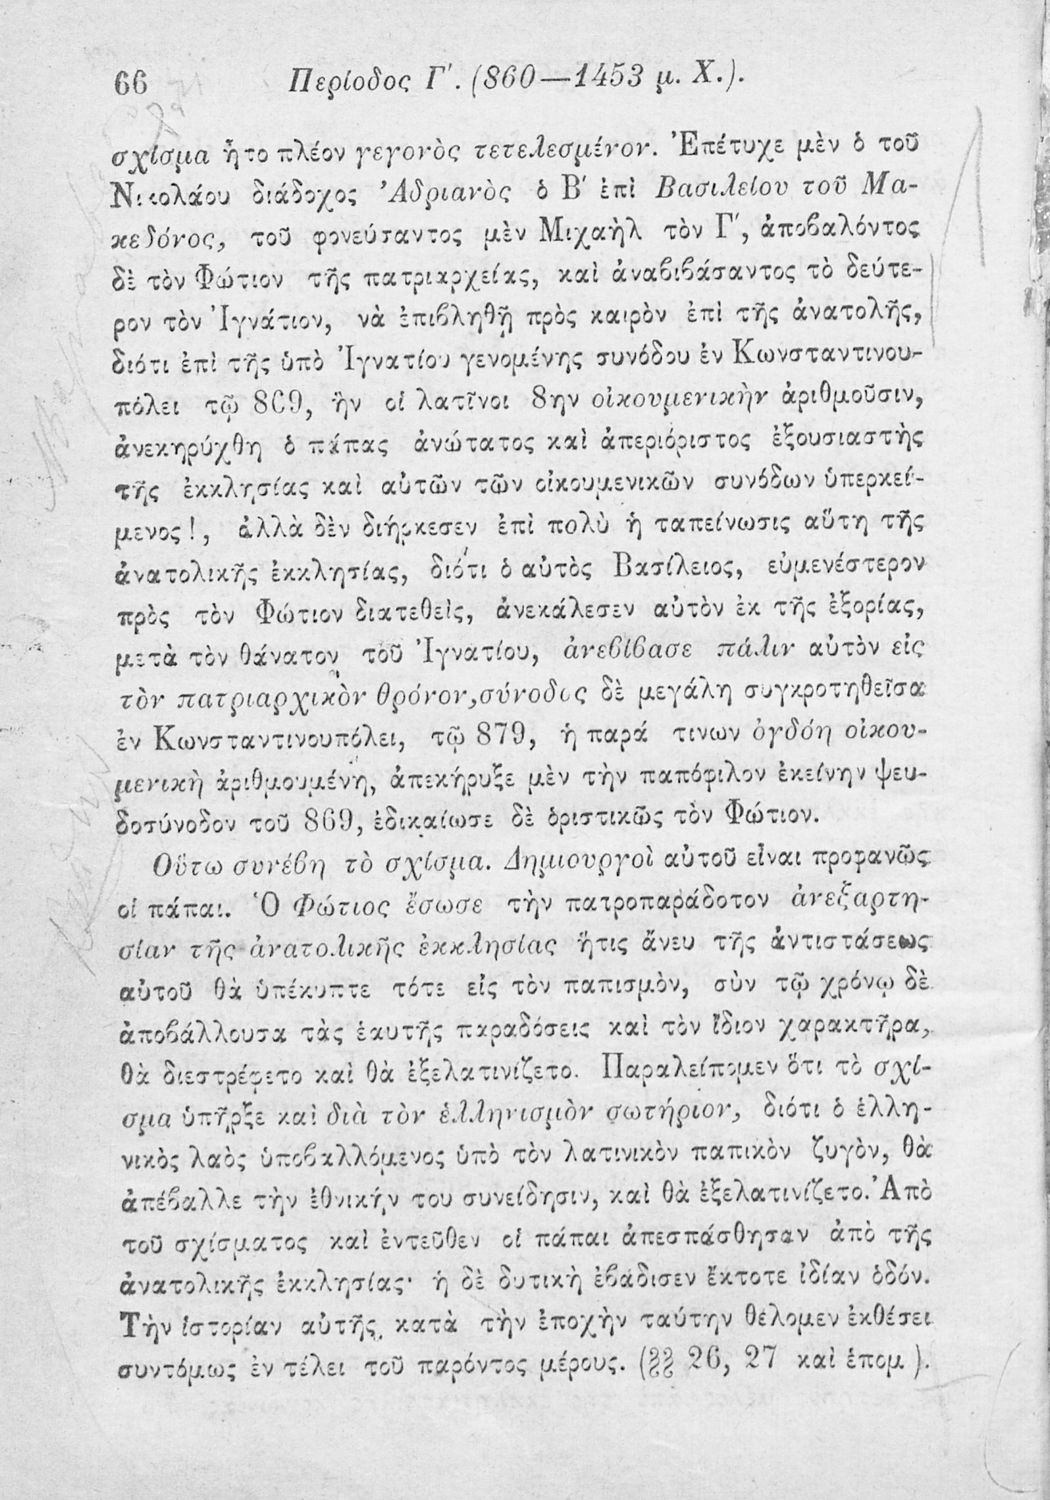 66 Περίοδος Γ΄. (860—1453 μ. Χ.).
σχίσμα ἦτο πλέον γεγονὸς τετελεσμένον. Ἐπέτυχε μὲν ὁ τοῦ
Νικολάου διάδοχος Ἀδριανὸς ὁ Β΄ ἐπὶ Βασιλείου τοῦ Μα-
κεδόνος, τοῦ φονεύσαντος μὲν Μιχαὴλ τὸν Γ΄, ἀποβαλόντος
δὲ τὸν Φώτιον τῆς πατριαρχείας, καὶ ἀναβιβάσαντος τὸ δεύτε-
ρον τὸν Ἰγνάτιον, νὰ ἐπιβληθῇ πρὸς καιρὸν ἐπὶ τῆς ἀνατολῆς,
διότι ἐπὶ τῆς ὑπὸ Ἰγνατίου γενομένης συνόδου ἐν Κωνσταντινου-
πόλει τῷ 869, ἣν οἱ λατῖνοι 8ην οἰκουμενικὴν ἀριθμοῦσιν,
ἀνεκηρύχθη ὁ πάπας ἀνώτατος καὶ ἀπεριόριστος ἐξουσιαστὴς
τῆς ἐκκλησίας καὶ αὐτῶν τῶν οἰκουμενικῶν συνόδων ὑπερκεί-
μενος!, ἀλλὰ δὲν διήρκεσεν ἐπὶ πολὺ ἡ ταπείνωσις αὕτη τῆς
ἀνατολικῆς ἐκκλησίας, διότι ὁ αὐτὸς Βασίλειος, εὐμενέστερον
πρὸς τὸν Φώτιον διατεθεὶς, ἀνεκάλεσεν αὐτὸν ἐκ τῆς ἐξορίας,
μετὰ τὸν θάνατον τοῦ Ἰγνατίου, ἀνεβίβασε πάλιν αὐτὸν εἰς
τὸν πατριαρχικὸν θρόνον, σύνοδος δὲ μεγάλη συγκροτηθεῖσα
ἐν Κωνσταντινουπόλει, τῷ 879, ἡ παρά τινων ὀγδόη οἰκου-
μενικὴ ἀριθμουμένη, ἀπεκήρυξε μὲν τὴν παπόφιλον ἐκείνην ψευ-
δοσύνοδον τοῦ 869, ἐδικαίωσε δὲ ὁριστικῶς τὸν Φώτιον.
Οὕτω συνέβη τὸ σχίσμα. Δημιουργοὶ αὐτοῦ εἶναι προφανῶς
οἱ πάπαι. Ὁ Φώτιος ἔσωσε τὴν πατροπαράδοτον ἀνεξαρτη-
σίαν τῆς ἀνατολικῆς ἐκκλησίας ἥτις ἄνευ τῆς ἀντιστάσεως
αὐτοῦ θὰ ὑπέκυπτε τότε εἰς τὸν παπισμὸν, σὺν τῷ χρόνῳ δὲ
ἀποβάλλουσα τὰς ἑαυτῆς παραδόσεις καὶ τὸν ἴδιον χαρακτῆρα,
θὰ διεστρέφετο καὶ θὰ ἐξελατινίζετο. Παραλείπομεν ὅτι τὸ σχί-
σμα ὑπῆρξε καὶ διὰ τὸν ἑλληνισμὸν σωτήριον, διότι ὁ ἑλλη-
νικὸς λαὸς ὑποβαλλόμενος ὑπὸ τὸν λατινικὸν παπικὸν ζυγὸν, θὰ
ἀπέβαλλε τὴν ἐθνικήν του συνείδησιν, καὶ θὰ ἐξελατινίζετο. Ἀπὸ
τοῦ σχίσματος καὶ ἐντεῦθεν οἱ πάπαι ἀπεσπάσθησαν ἀπὸ τῆς
ἀνατολικῆς ἐκκλησίας· ἡ δὲ δυτικὴ ἐβάδισεν ἔκτοτε ἰδίαν ὁδόν.
Τὴν ἱστορίαν αὐτῆς κατὰ τὴν ἐποχὴν ταύτην θέλομεν ἐκθέσει
συντόμως ἐν τέλει τοῦ παρόντος μέρους. (§§ 26, 27 καὶ ἑπομ).